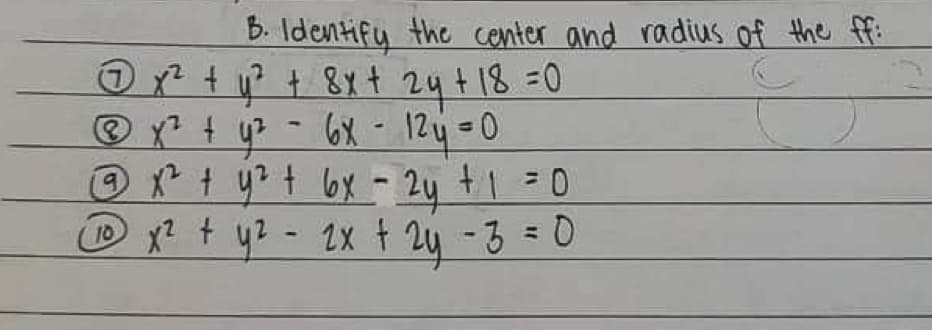 B. Identify the center and radius of the ff:
⑦ x² + y² + 8x + 2y + 18 = 0
⑧ x² + y² - 6x - 12y = 0
⑨ x² + y² + 6x - 2y + 1 = 0
⑩ x² + y² - 2x + 2y - 3 = 0